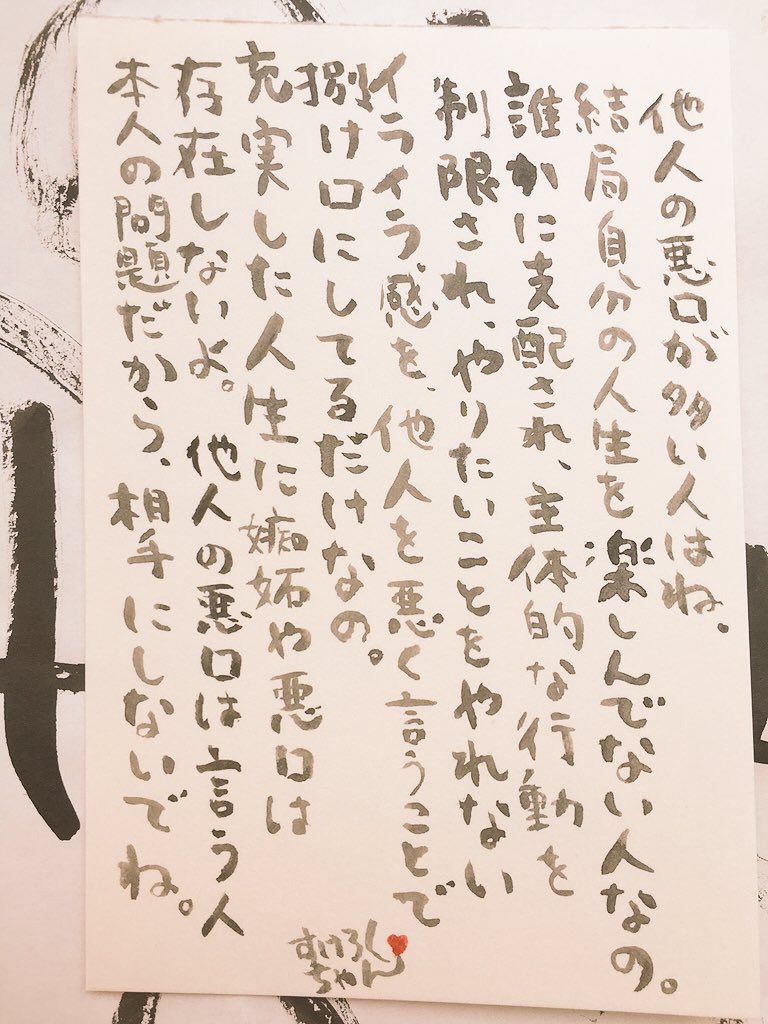 他人の悪口が多い人はね、
結局自分の人生を楽しんでない人なの。
誰かに支配され、主体的な行動を
制限され、やりたいことをやれない
イライラ感を、他人を悪く言うことで
捌け口にしてるだけなの。
充実した人生に嫉妬や悪口は
存在しないよ。他人の悪口は言う人
本人の問題だから、相手にしないでね。